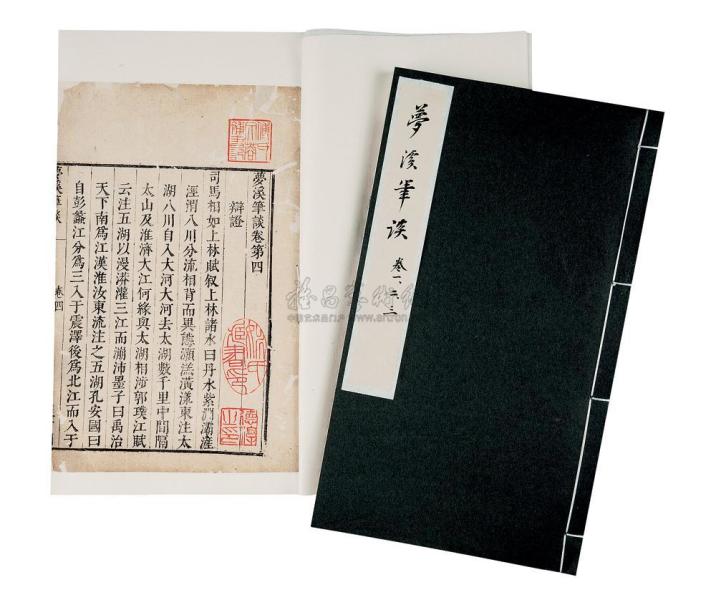 夢溪筆談卷第四
辯證
司馬相如上林賦叙上林諸水曰丹水紫淵灞滻
涇渭八川分流相背而異態灝溔潢漾東注太
湖八川自入大河大河去太湖數千里中間隔
太山及淮濟大江何緣與太湖相涉郭璞江賦
云注五湖以漫漭灌三江而漰沛墨子曰禹治
天下南爲江漢淮汝東流注之五湖孔安國曰
自彭蠡江分爲三入于震澤後爲北江而入于
夢溪筆談
卷四
夢溪筆談
卷一、二、三